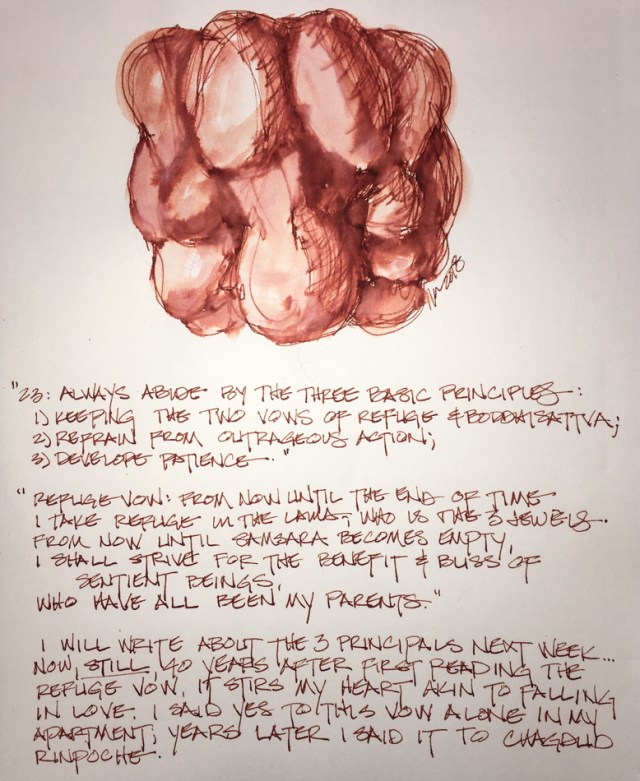 2018
"23: ALWAYS ABIDE BY THE THREE BASIC PRINCIPLES:
1) KEEPING THE TWO VOWS OF REFUGE & BODDHISATTVA;
2) REFRAIN FROM OUTRAGEOUS ACTION;
3) DEVELOPE PATIENCE."
"REFUGE VOW: FROM NOW UNTIL THE END OF TIME
I TAKE REFUGE IN THE LAMA, WHO IS THE 3 JEWELS.
FROM NOW UNTIL SAMSARA BECOMES EMPTY,
I SHALL STRIVE FOR THE BENEFIT & BLISS OF
SENTIENT BEINGS,
WHO HAVE ALL BEEN MY PARENTS."
I WILL WRITE ABOUT THE 3 PRINCIPALS NEXT WEEK...
NOW, STILL, 40 YEARS AFTER FIRST READING THE
REFUGE VOW, IT STIRS MY HEART AKIN TO FALLING
IN LOVE. I SAID YES TO THIS VOW ALONE IN MY
APARTMENT; YEARS LATER I SAID IT TO CHAGDUD
RINPOCHE.